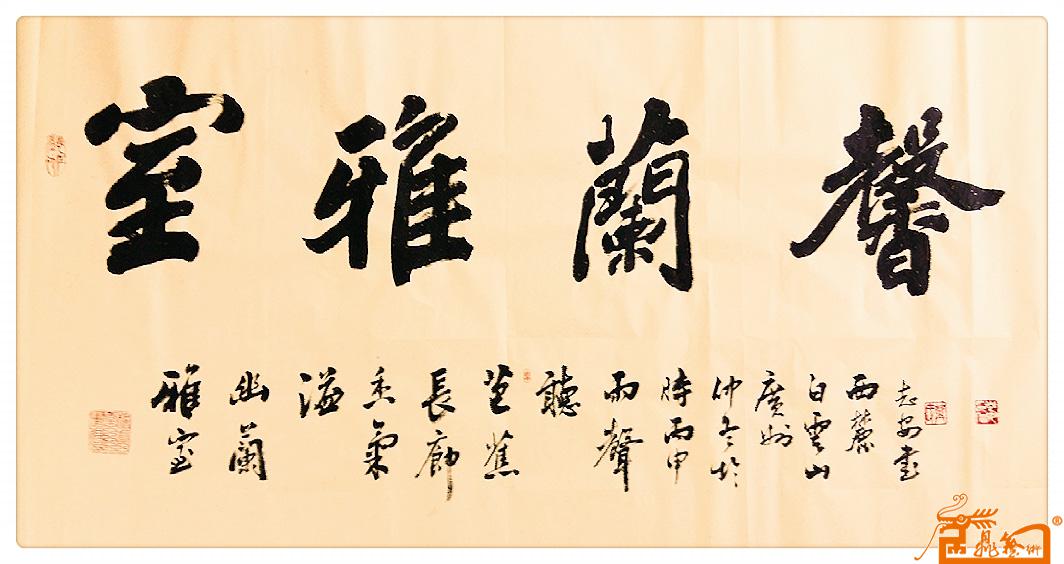 室雅蘭馨
雅室
幽蘭
溢
香氣
長廊
芭蕉
聽
雨聲
時丙申
仲冬於
廣州
白雲山
西麓
志安書